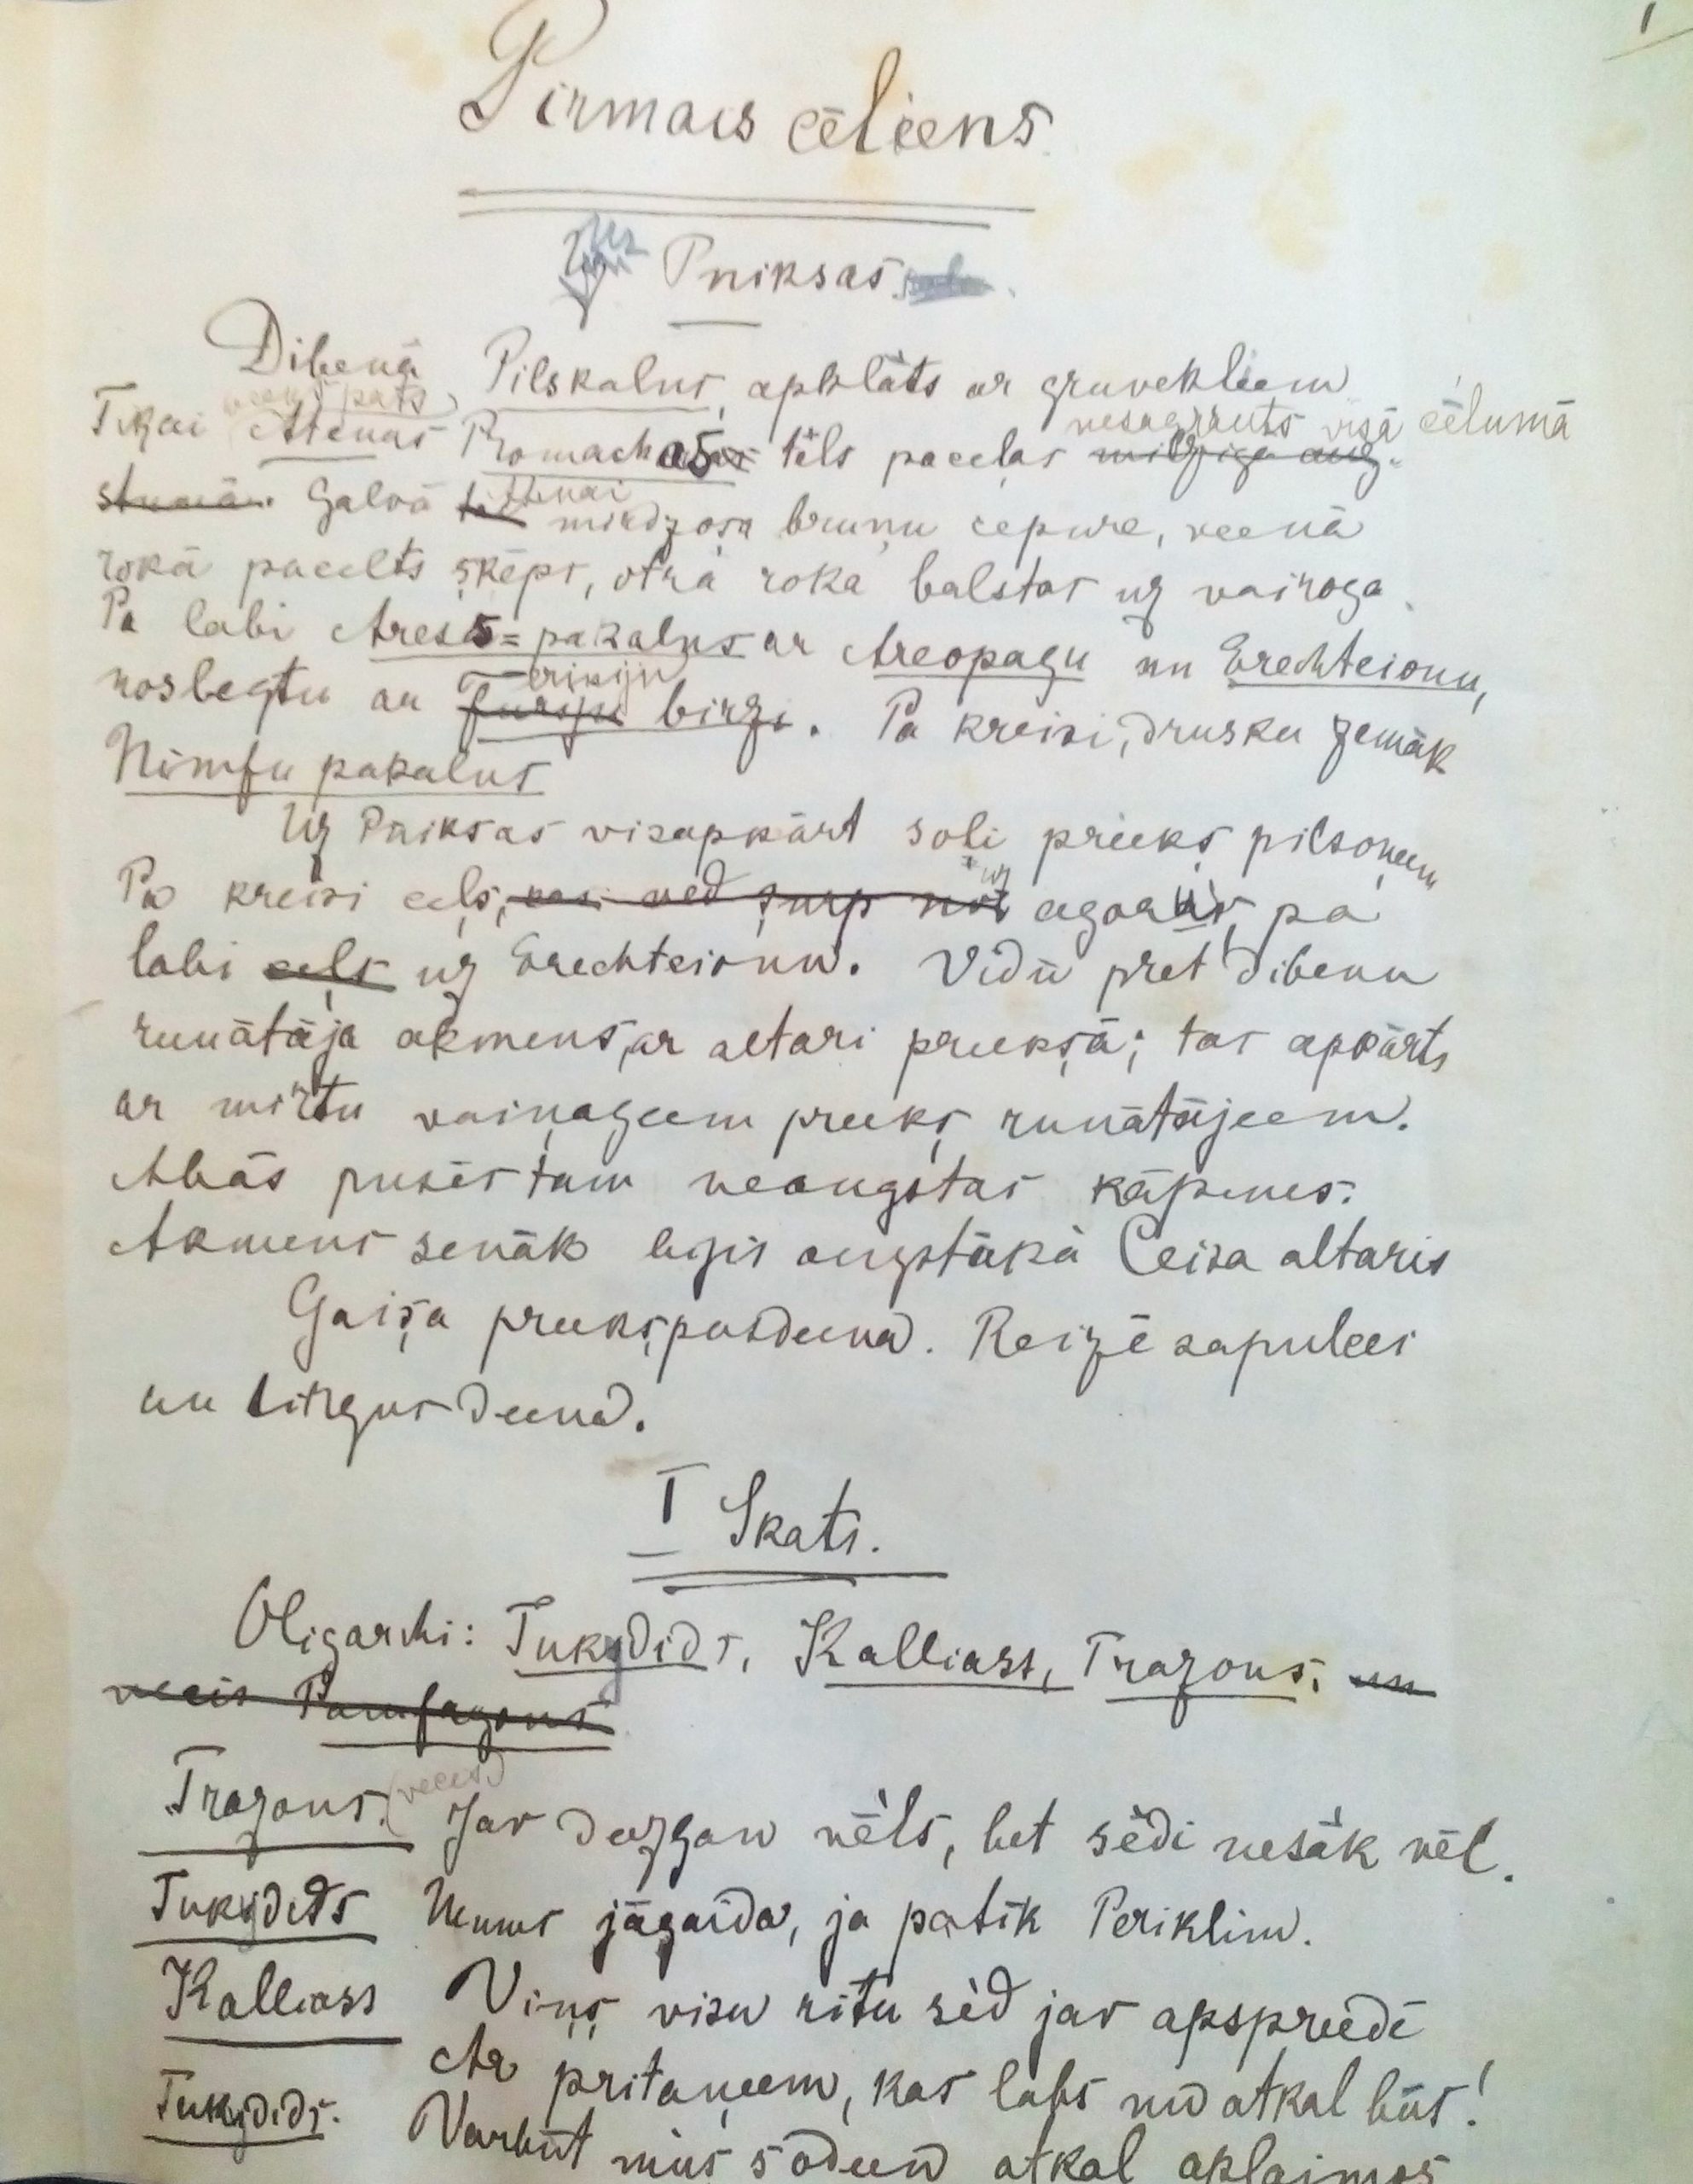 1
Pirmais cēliens.
Uz Pniksas.
Dibenā Pilskalns, apklāts ar gruvekļeem
veenīpats nesagrauts visā cēlumā
Tikai Atenas Promachos tēls paceļas milzīgā aug-
stumā. Galvā tai Atenai mirdzoša bruņu cepure, veenā
rokā pacelts šķēps, otrā roka balstas uz vairoga.
Pa labi Aresa-pakalns ar Areopagu un Erechteionu,
noslegtu ar Furiju Eriniju birzi. Pa kreisi, drusku zemāk
Nimfu pakalns
Uz Pniksas visapkārt soli preekš pilsoņeem
Pa kreisi ceļš, kas ved turp uz agoru, pa
labi ceļš uz Erechteionu. Vidū pret dibenu
runātāja akmens, ar altari preekšā; tas apkārts
ar mirtu vaiņageem preekš runātājeem.
Abās pusēs tam neaugstas kāpenes.
Akmens senāk bijis augstākā Ceisa altaris
Gaiša preekšpusdeena. Reizē sapulces
un tirgus deena.
I Skats.
Oligarchi: Tukydids, Kalliass, Trazons, un
vecis Pamfagons
Trazons. (vecis) Jav deezgan vēls, bet sēdi nesāk vēl.
Tukydids Mums jāgaida, ja patīk Periklim.
Kalliass Viņš visu rītu sēd jav apspreedē
Ar pritaņeem, kas labs nu atkal būs!
Tukydids. Varbūt mūs šodeen atkal aplaimos